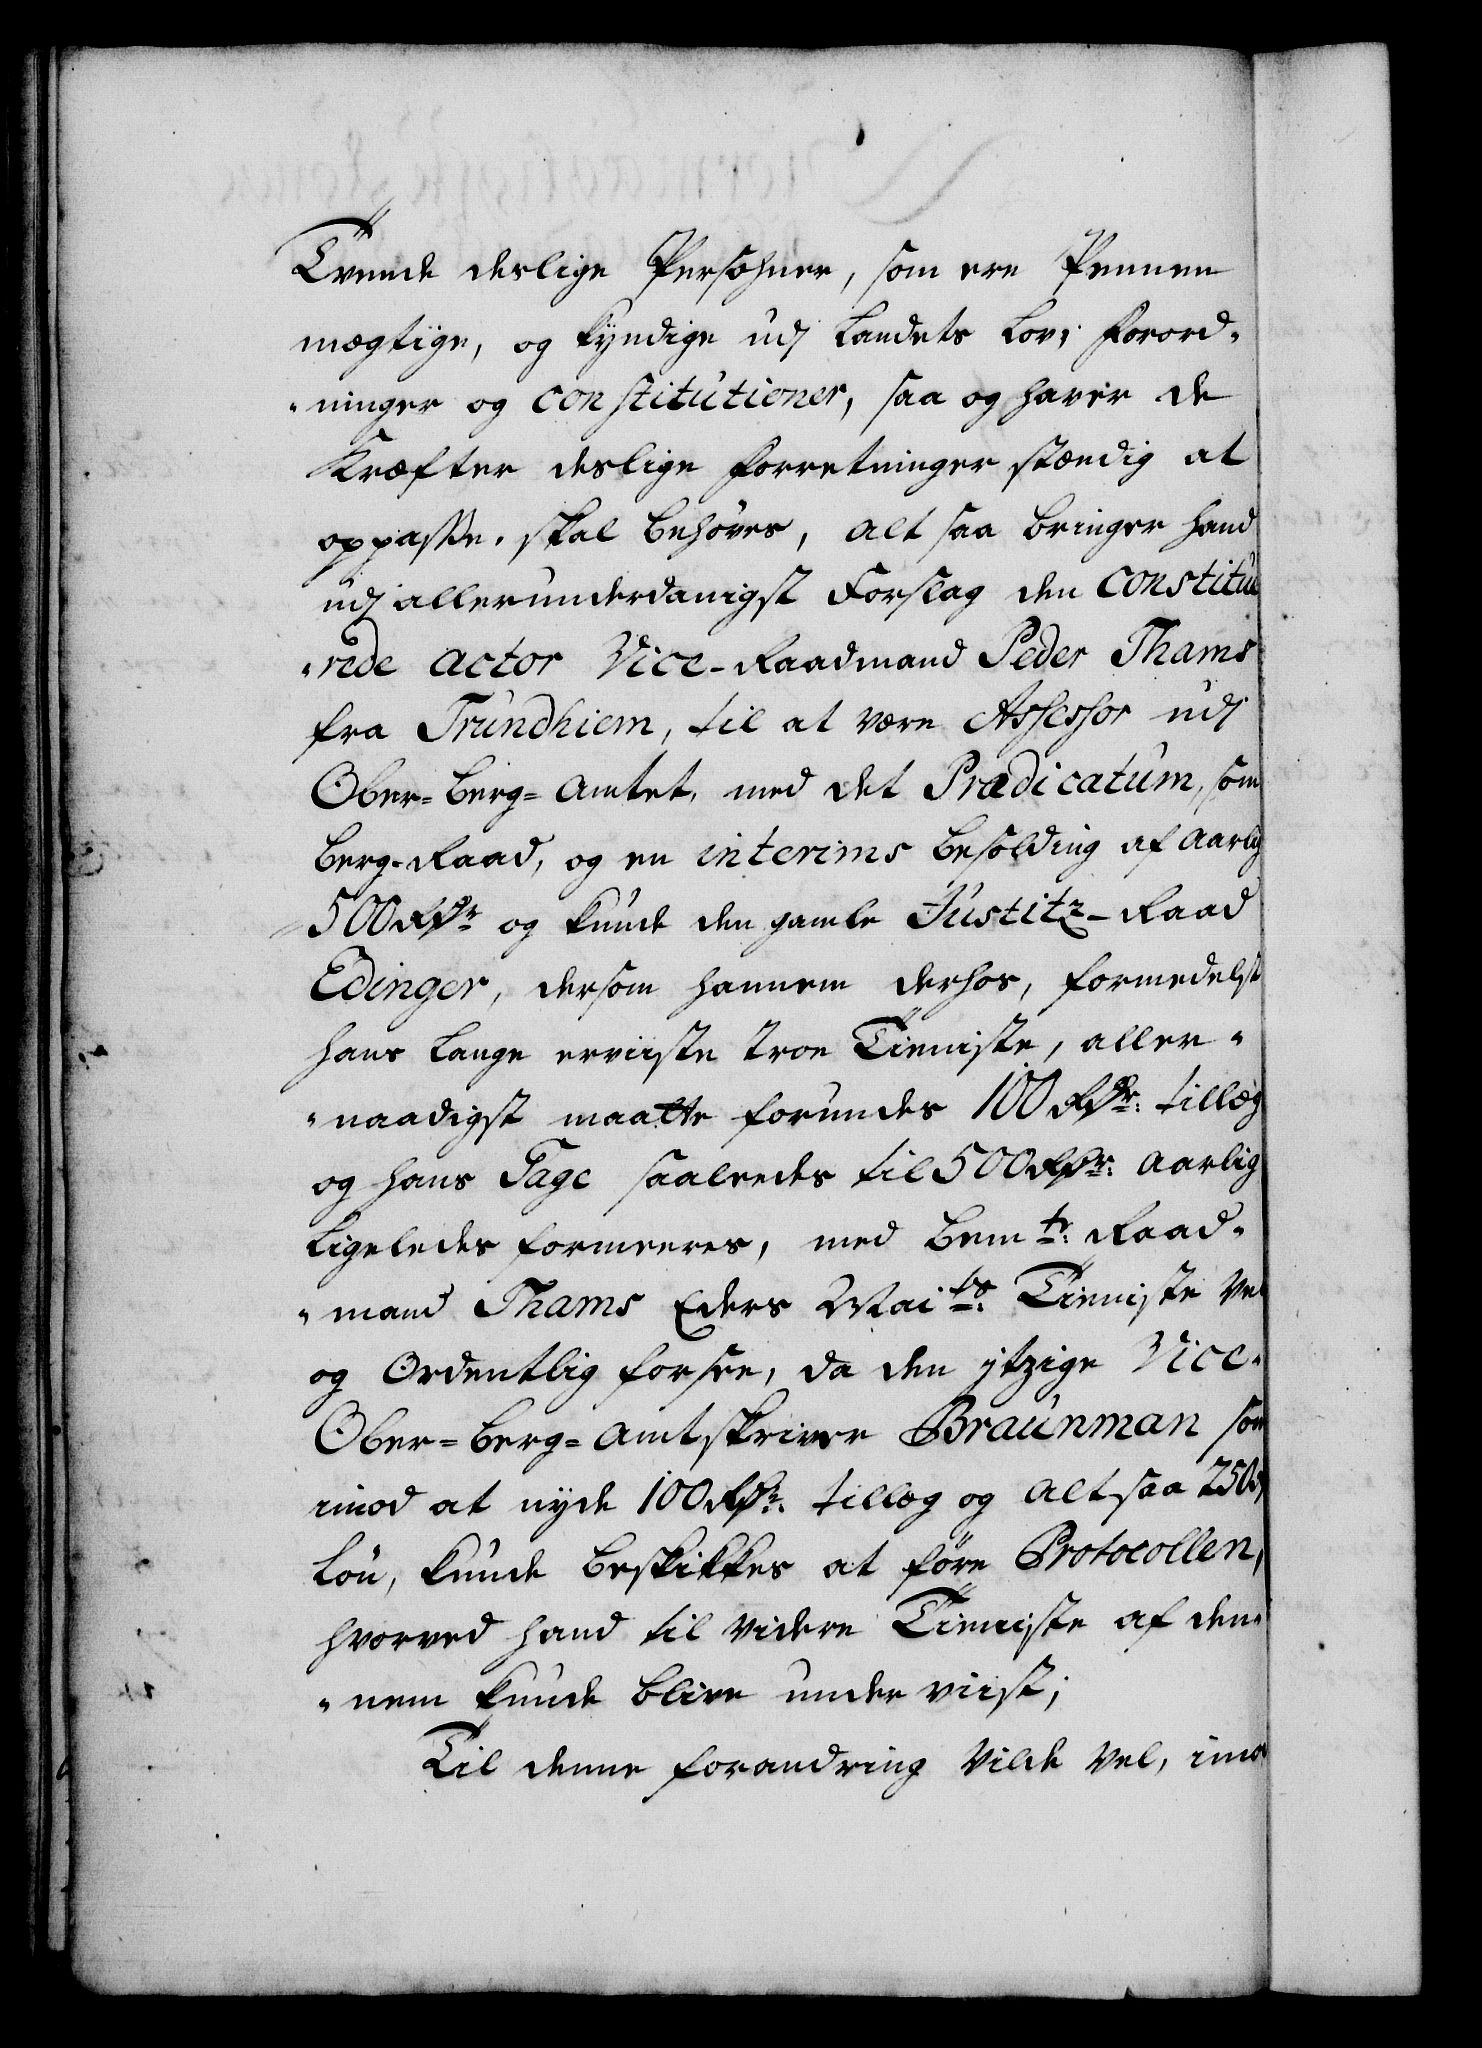 Tvende deslige Persohner, som ere Pennen
mægtige, og kyndige udj Landets Lov, Forord-
-ninger og Constitutioner, saa og haver de
Kræfter deslige Forretninger stædig at
oppasse, skal behöves, alt saa bringer hand
udj allerunderdanigst Forslag den Constitue
-rede Actor Vice-Raadmand Peder Thams
fra Trundhiem, til at være Assessor udj
Ober-Berg-Amtet, med det Prædicatum, som
Berg-Raad, og en interims Besolding af Aarlig
500 Rdr og kunde den gamle Justitz-Raad
Edinger, dersom hannem derhos, formedelst
hans lange erviiste troe Tieniste, aller-
-naadigst maatte forundes 100 Rdr: tillæg
og hans Gage saaledes til 500 Rdr: Aarlig
ligeledes formeeres, med bemte: Raad-
-mand Thams Eders Maits: Tieniste Vel
og Ordentlig forsee, da den itzige Vice-
Ober-Berg-Amtskriver Braunman som
imod at nyde 100 Rdr: tillæg og alt saa 250
Lön, kunde beskikkes at före Protocollen,
hvorved hand til videre Tieniste af den-
-nem kunde blive underviist;
Til denne forandring Vilde vel, imod